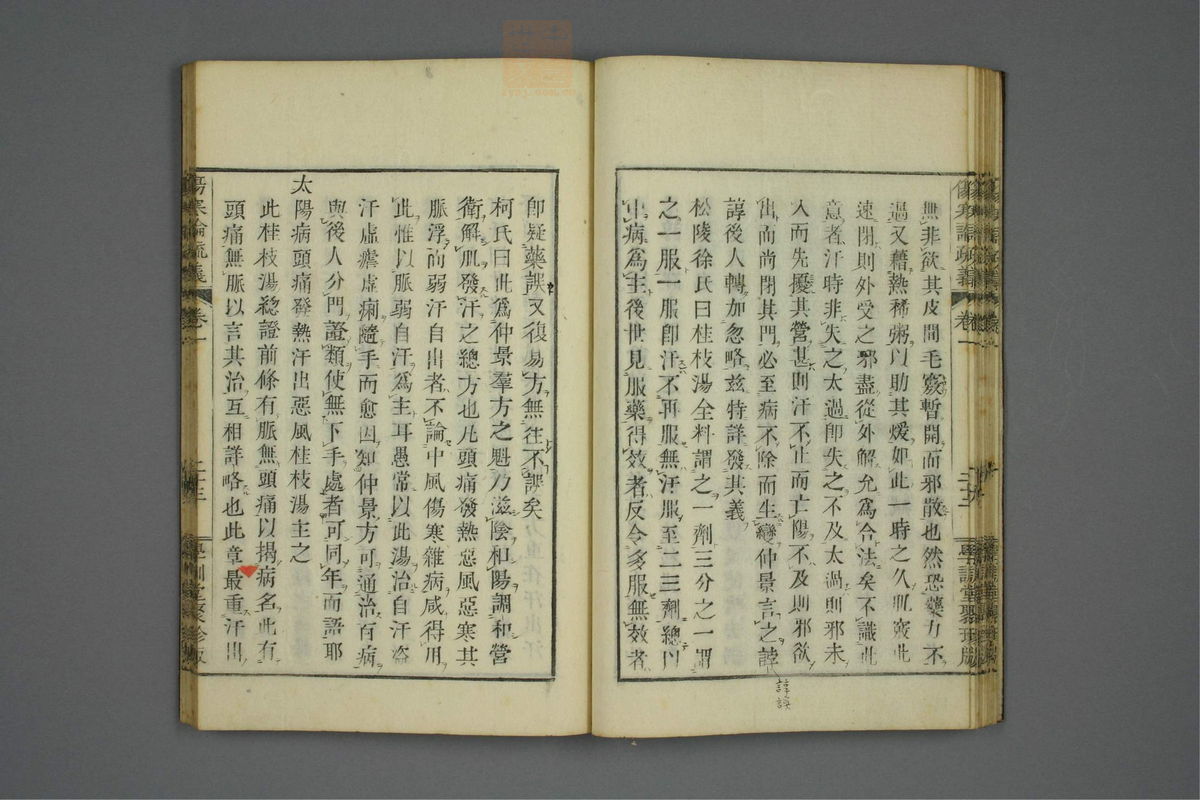 傷寒論疏義
卷一
學訓堂聚珍版
無非欲其皮間毛竅暫開而邪散也然恐藥力不
過又藉熱稀粥以助其煖如此一時之久肌竅此
速閉則外受之邪盡從外解允為合法矣不識此
意者汗時非失之太過即失之不及太過則邪未
入而先擾其營甚則汗不止而亡陽不及則邪欲
出而尚閉其門必至病不除而生變仲景言之諄
諄後人轉加忽略茲特詳發其義
松陵徐氏曰桂枝湯全料謂之一劑三分之一謂
之一服一服卽汗不再服無汗服至二三劑總以
中病爲主後世見服藥得效者反令多服無效者
諄誤
卽疑藥誤又復易方無往不誤矣
柯氏曰此爲仲景羣方之魁乃滋陰和陽調和營
衛解肌發汗之總方也凡頭痛發熱惡風惡寒其
脈浮而弱汗自出者不論中風傷寒雜病咸得用
此惟以脈弱自汗爲主耳愚常以此湯治自汗盜
汗虛瘧虛痢隨手而愈因知仲景方可通治百病
與後人分門證類使無下手處者可同年而語耶
太陽病頭痛發熱汗出惡風桂枝湯主之
此桂枝湯總證前條有脈無頭痛以揭病名此有
頭痛無脈以言其治互相詳略也此章最重汗出
傷寒論疏義
卷一
二十三
學訓堂聚珍版